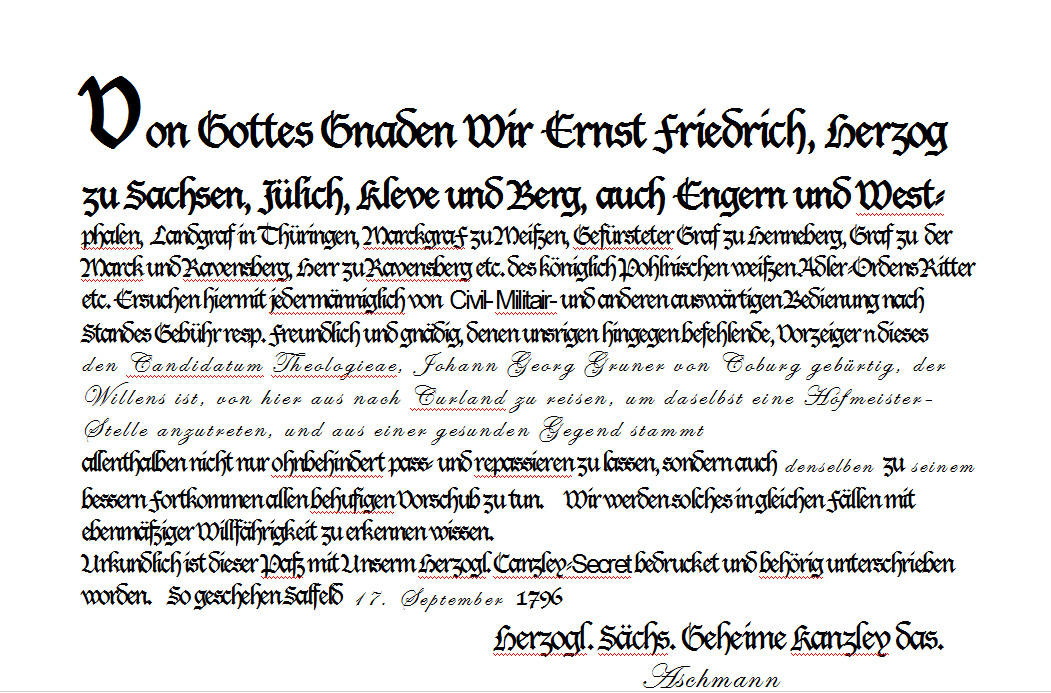 Von Gottes Gnaden Wir Ernst Friedrich, Herzog
zu Sachsen, Jülich, Kleve und Berg, auch Engern und West-
phalen, Landgraf in Thüringen, Marckgraf zu Meißen, Gefürsteter Graf zu Henneberg, Graf zu der
Marck und Ravensberg, Herr zu Ravensberg etc. des königlich Pohlnischen weißen Adler-Ordens Ritter
etc. Ersuchen hiermit jedermänniglich von Civil- Militair- und anderen auswärtigen Bedienung nach
Standes Gebühr resp. freundlich und gnädig, denen unsrigen hingegen befehlende, Vorzeigern dieses
den Candidatum Theologieae, Johann Georg Gruner von Coburg gebürtig, der
Willens ist, von hier aus nach Curland zu reisen, um daselbst eine Hofmeister-
Stelle anzutreten, und aus einer gesunden Gegend stammt
allenthalben nicht nur ohnbehindert pass- und repassieren zu lassen, sondern auch denselben zu seinem
bessern Fortkommen allen behufigen Vorschub zu tun. Wir werden solches in gleichen Fällen mit
ebenmäßiger Willfährigkeit zu erkennen wissen.
Urkundlich ist dieser Paß mit Unserm Herzogl. Canzley-Secret bedrucket und behörig unterschrieben
worden. So geschehen Salfeld 17. September 1796
Herzogl. Sächs. Geheime Kanzley das.
Aschmann